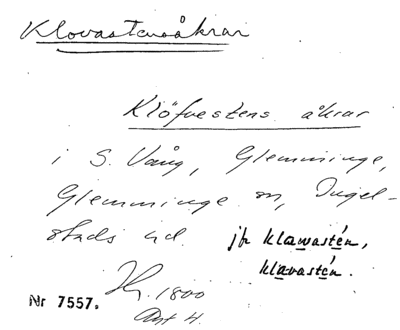 Klovastensåkrar
Klöfvestens åkrar
i S. Vång, Glemminge,
Glemminge sn, Ingel-
stads hd. jfr klawastén,
klavastén.
1800
Nr 7557. Akt 4.